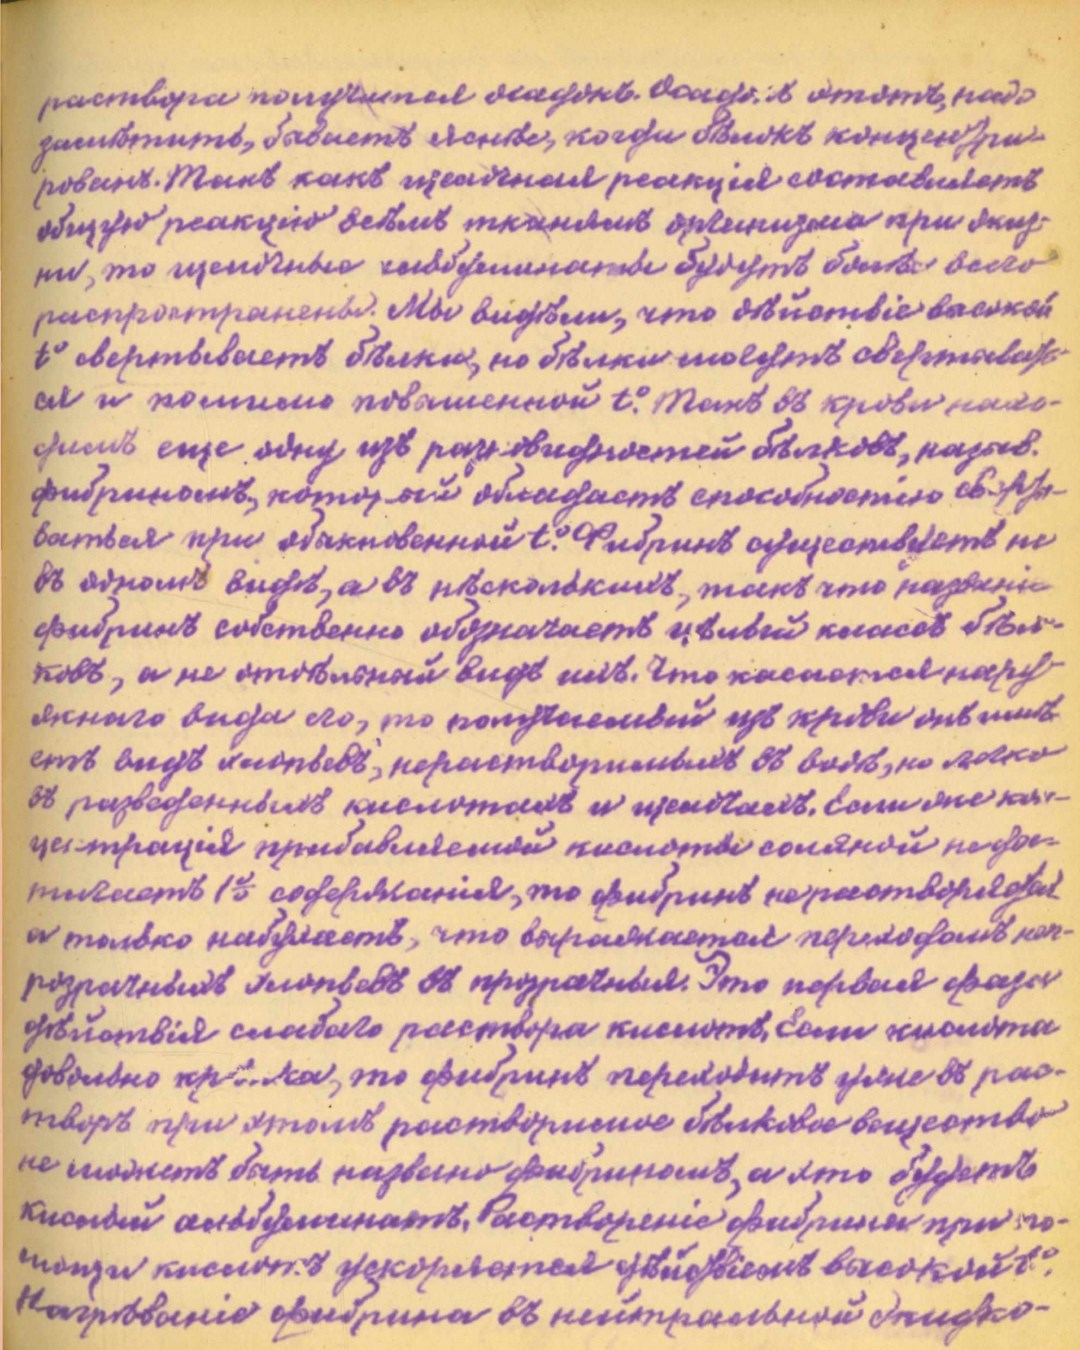 раствора получится осадокъ. Осадокъ этотъ, надо
замѣтить, бываетъ яснѣе, когда бѣлокъ концентри-
рованъ. Такъ какъ щелочная реакція составляетъ
общую реакцію всѣмъ тканямъ организма при жиз-
ни, то щелочные альбуминаты будутъ болѣе всего
распространены. Мы видѣли, что дѣйствіе высокой
t° свертываетъ бѣлки, но бѣлки могутъ свертывать-
ся и помимо повышенной t°. Такъ въ крови нахо-
димъ еще одну изъ разновидностей бѣлковъ, назыв.
фибриномъ, который обладаетъ способностію сверты-
ваться при обыкновенной t°. Фибринъ существуетъ не
въ одномъ видѣ, а въ нѣсколькихъ, такъ что названіе
фибринъ собственно обозначаетъ цѣлый классъ бѣл-
ковъ, а не отдѣльный видъ ихъ. Что касается нару-
жнаго вида его, то получаемый изъ крови онъ имѣ-
етъ видъ хлопьевъ, нерастворимыхъ въ водѣ, но легко
въ разведенныхъ кислотахъ и щелочахъ. Если же кон-
центрація прибавляемой кислоты соляной не дос-
тигаетъ 1% содержанія, то фибринъ не растворяется
а только набухаетъ, что выражается переходомъ неп-
розрачныхъ хлопьевъ въ прозрачныя. Это первая фаза
дѣйствія слабаго раствора кислотъ. Если кислота
довольно крѣпка, то фибринъ переходитъ уже въ рас-
творъ при этомъ растворимое бѣлковое вещество
не можетъ быть названо фибриномъ, а это будетъ
кислый альбуминатъ. Раствореніе фибрина при по-
мощи кислотъ ускоряется дѣйствіемъ высокой t°.
Нагрѣваніе фибрина въ нейтральной жидко-